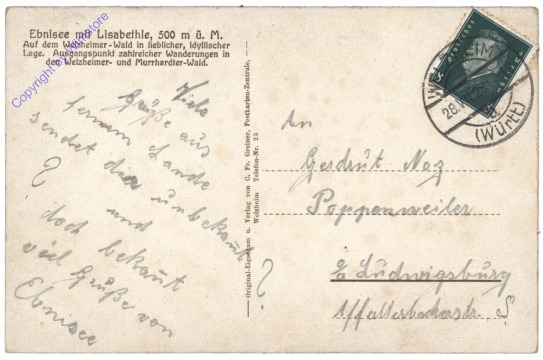 Ebnisee mit Lisabethle, 500 m ü. M.
Auf dem Welzheimer-Wald in lieblicher, idyllischer
Lage. Ausgangspunkt zahlreicher Wanderungen in
den Welzheimer- und Murrhardter-Wald.
Viele
Grüße aus
fernem Lande
sendet die unbekannt
und
doch bekannt
viel Grüße von
Ebnisee
Original-Eigentum u. Verlag von C. Fr. Greiner, Postkarten-Zentrale,
Welzheim Telefon-Nr. 25
An
Gerdrut Noz
Poppenweiler
?
Ludwigsburg
Affalterbacherstr. 8
(Württ)
28.
Copyright © ansichtskartenstore